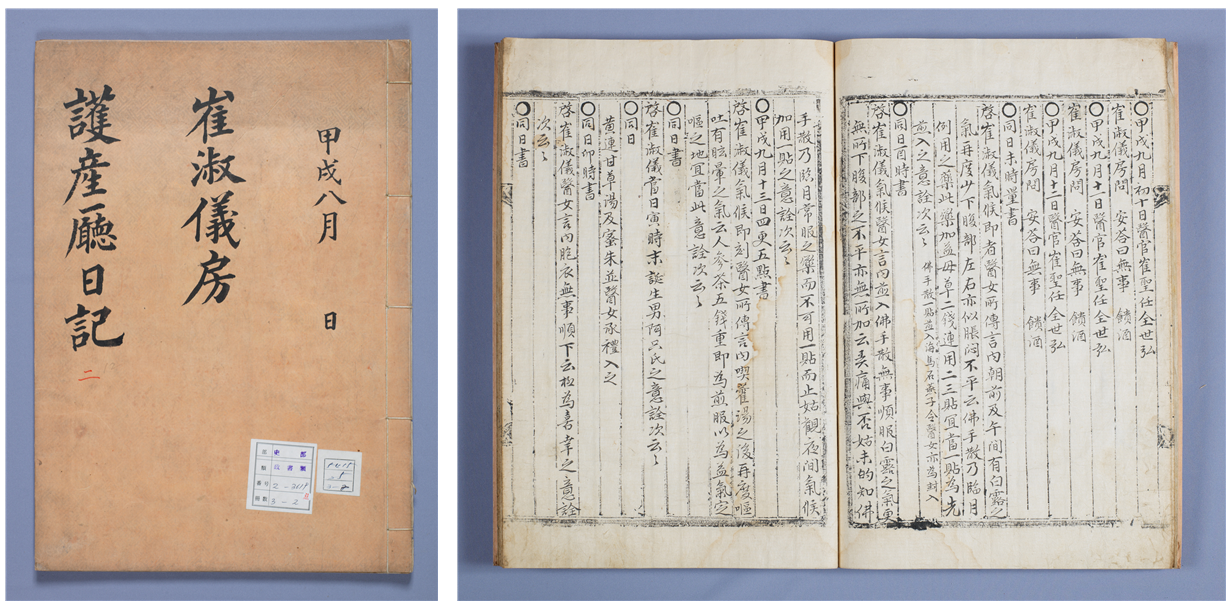 甲戌八月 日
崔淑儀房
護産廳日記
二
史部
政書類
3-2
〇甲戌九月初十日醫官崔聖任全世弘
崔淑儀房問 安答曰無事 饋酒
〇甲戌九月十一日醫官崔聖任全世弘
崔淑儀房問 安答曰無事 饋酒
〇甲戌九月十二日醫官崔聖任全世弘
崔淑儀房問 安答曰無事 饋酒
〇同日未時量書
啓崔淑儀氣候即者醫女所傳言內朝前及午間有白露之
氣再度少下腹部左右亦似脹悶不平云佛手散乃臨月
例用之藥此藥加益母草二戔連用二三貼宜當一貼爲先
煎入之意詮次云々 佛手散一貼並入海馬石燕子令醫女亦爲封入
〇同日酉時書
啓崔淑儀氣候醫女言內煎入佛手散無事順服白露之氣更
無所下腹部之不平亦無所加云矣痛與否姑未的知佛
手散乃臨月常服之藥而不可用一貼而止姑觀夜間氣候
加用一貼之意詮次云々
〇甲戌九月十三日四更五點書
啓崔淑儀氣候即刻醫女所傳言內喫藿湯之後再度嘔
吐有眩暈之氣云人參茶五錢重即爲煎服以爲益氣定
嘔之地宜當此意詮次云々
〇同日書
啓崔淑儀當日寅時末誕生男阿只氏之意詮次云々
〇同日
黃連甘草湯及蜜朱並醫女承禮入之
〇同日卯時書
啓崔淑儀醫女言內胞衣無事順下云極爲喜幸之意詮
次云々
〇同日書